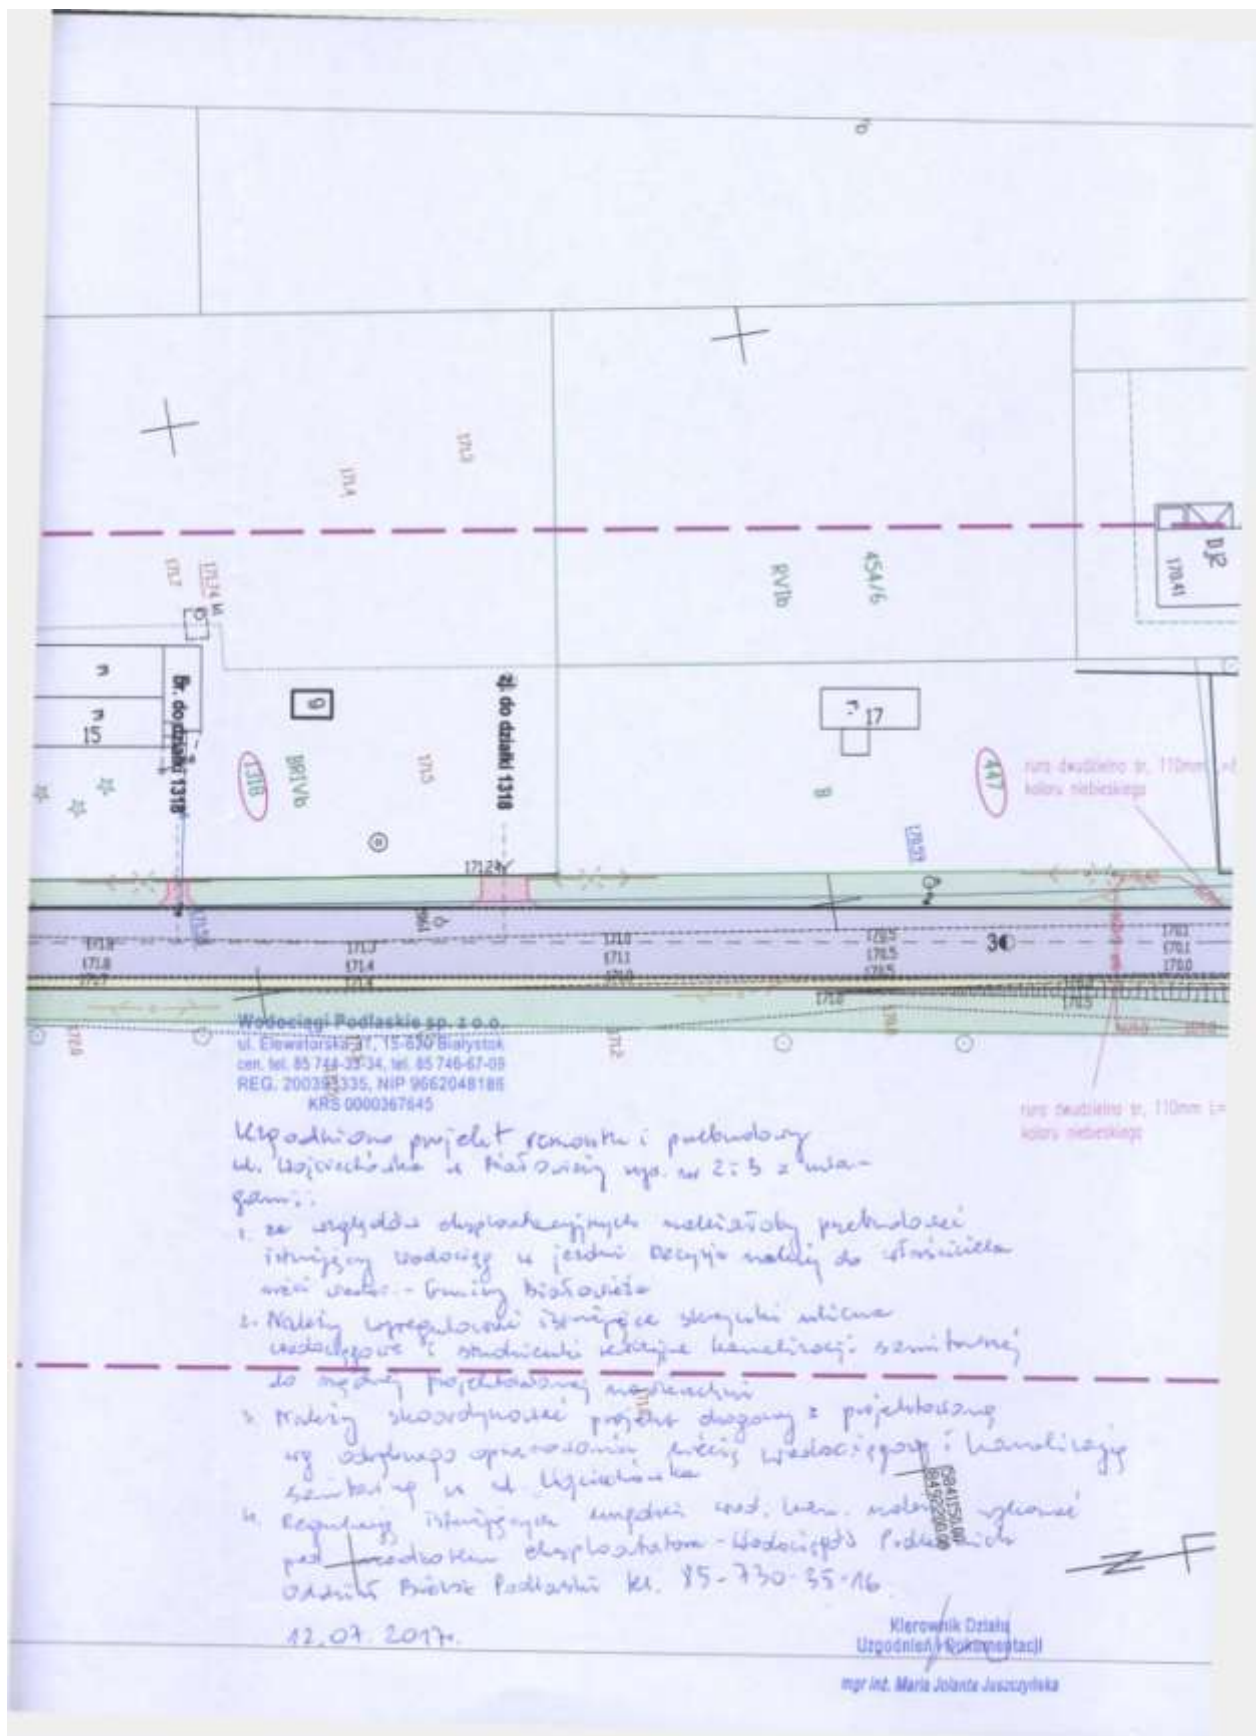 171.3
171.4
454/6
RVIb
170.41
171.7
171.74
n
n
15
br. do działki 1318
g
zj. do działki 1318
1318
BRIVb
171.5
r.
17
B
447
rura dwudzielna śr. 110mm
koloru niebieskiego
171.24
171.3
171.0
170.5
170.1
171.8
171.4
171.1
170.5
170.1
171.7
171.4
171.0
170.5
170.0
171.0
170.5
171.2
Wodociągi Podlaskie sp. z o.o.
ul. Elewatorska 31, 15-620 Białystok
cen. tel. 85 744-33-34, tel. 85 746-67-09
REG. 200393335, NIP 9662048186
KRS 0000367645
rura dwudzielna śr. 110mm L=
koloru niebieskiego
Uzgodniono projekt remontu i przebudowy
ul. Wojciechówka w Białowieży rys. nr 2 i 3 z uwa-
gami:
1. ze względów eksploatacyjnych należałoby przebudować
istniejący wodociąg w jezdni Decyzja należy do właściciela
sieci - Gminy Białowieża
2. Należy wyregulować istniejące skrzynki uliczne
wodociągowe i studzienki rewizyjne kanalizacji sanitarnej
do rzędnej projektowanej nawierzchni
3. Należy skoordynować projekt drogowy z projektowaną
wg odrębnego opracowania siecią wodociągową i kanalizacją
sanitarną w ul. Wojciechówka
4. Regulację istniejących urządzeń wod. kan. należy wykonać
pod nadzorem eksploatatora - Wodociągów Podlaskich
Oddział Bielsk Podlaski tel. 85-730-35-16
12.07.2017r.
Kierownik Działu
Uzgodnień i Dokumentacji
mgr inż. Maria Jolanta Juszczyńska